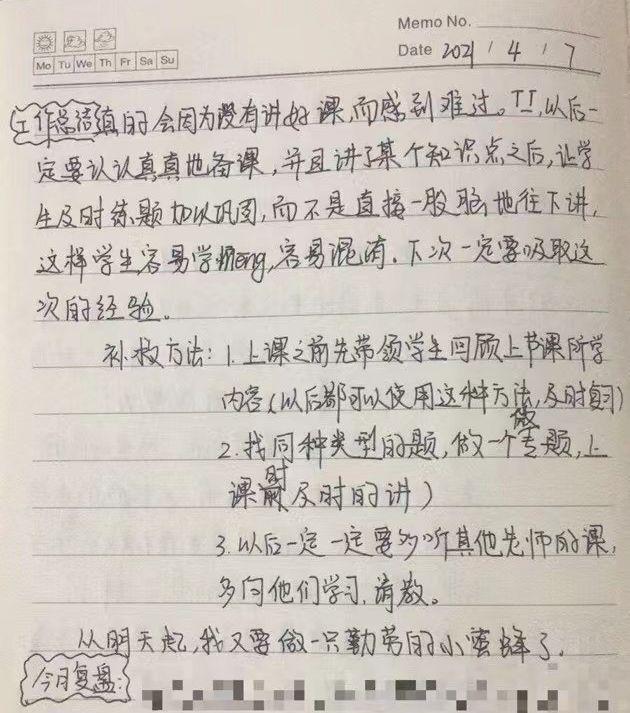 Memo No.
Date 2021 / 4 / 7
Mo Tu We Th Fr Sa Su
工作总结 真的会因为没有讲好课,而感到难过。TT,以后一
定要认认真真地备课,并且讲了某个知识点之后,让学
生及时练题加以巩固,而不是直接一股脑地往下讲,
这样学生容易学meng,容易混淆.下次一定要吸取这
次的经验。
补救方法:1.上课之前先带领学生回顾上节课所学
内容(以后都可以使用这种方法,及时复习)
2.找同种类型的题,做一个专题,上
课时及时的讲)
3.以后一定一定要多听其他老师的课,
多向他们学习,请教。
从明天起,我又要做一只勤劳的小蜜蜂了.
今日复盘: